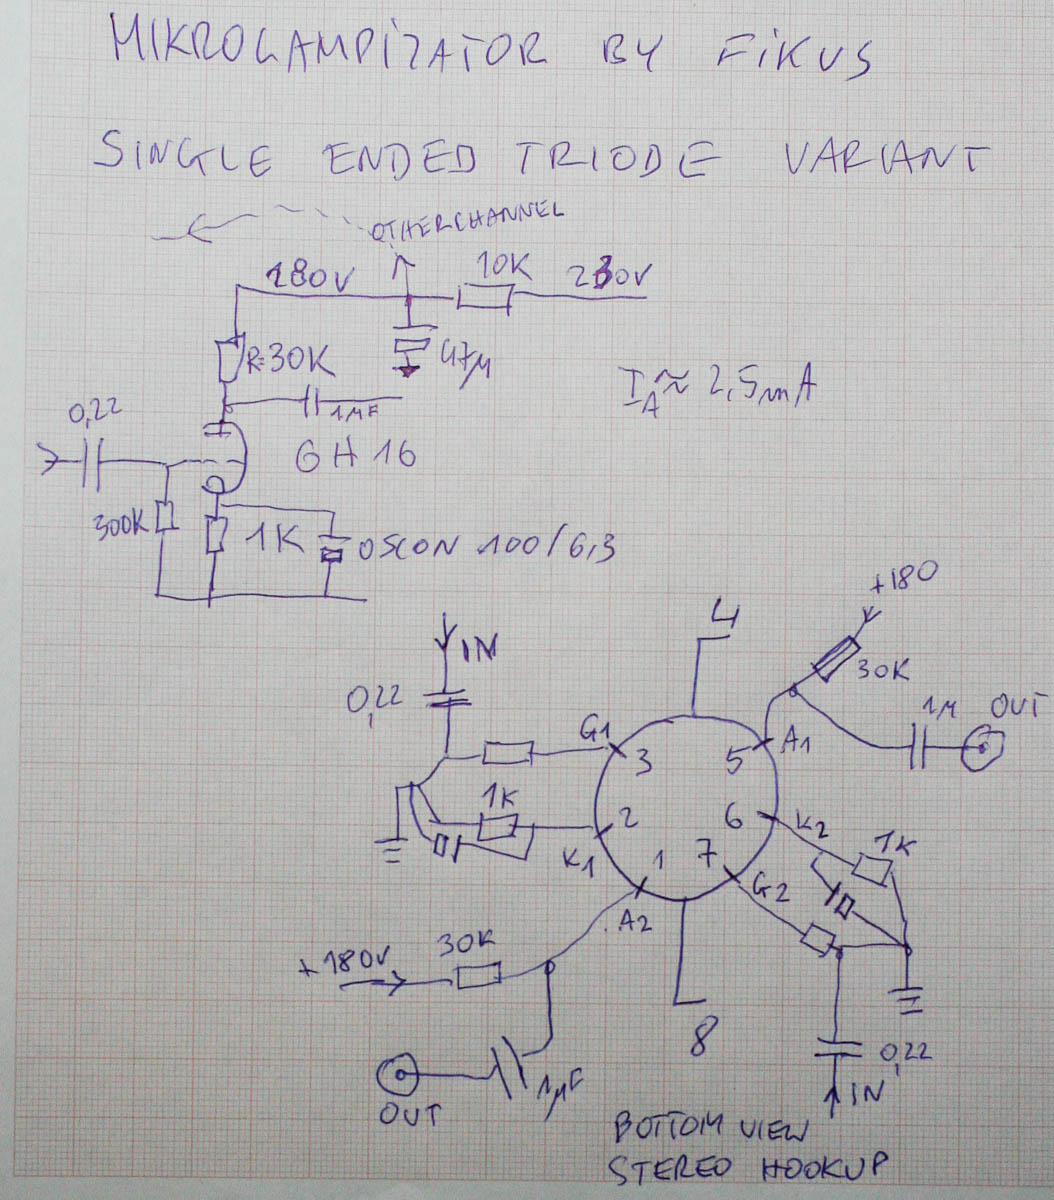 MIKROLAMPIZATOR BY FIKUS
SINGLE ENDED TRIODE VARIANT
OTHER CHANNEL
180V
10K
230V
R=30K
47µ
IA≈2,5mA
1µF
0,22
6H16
300K
1K
OSCON 100/6,3
+180
4
IN
30K
0,22
1µ OUT
G1
A1
3
5
1K
2
6
K2
1K
K1
1
7
G2
A2
30K
+180V
8
0,22
1µF
IN
OUT
BOTTOM VIEW
STEREO HOOKUP